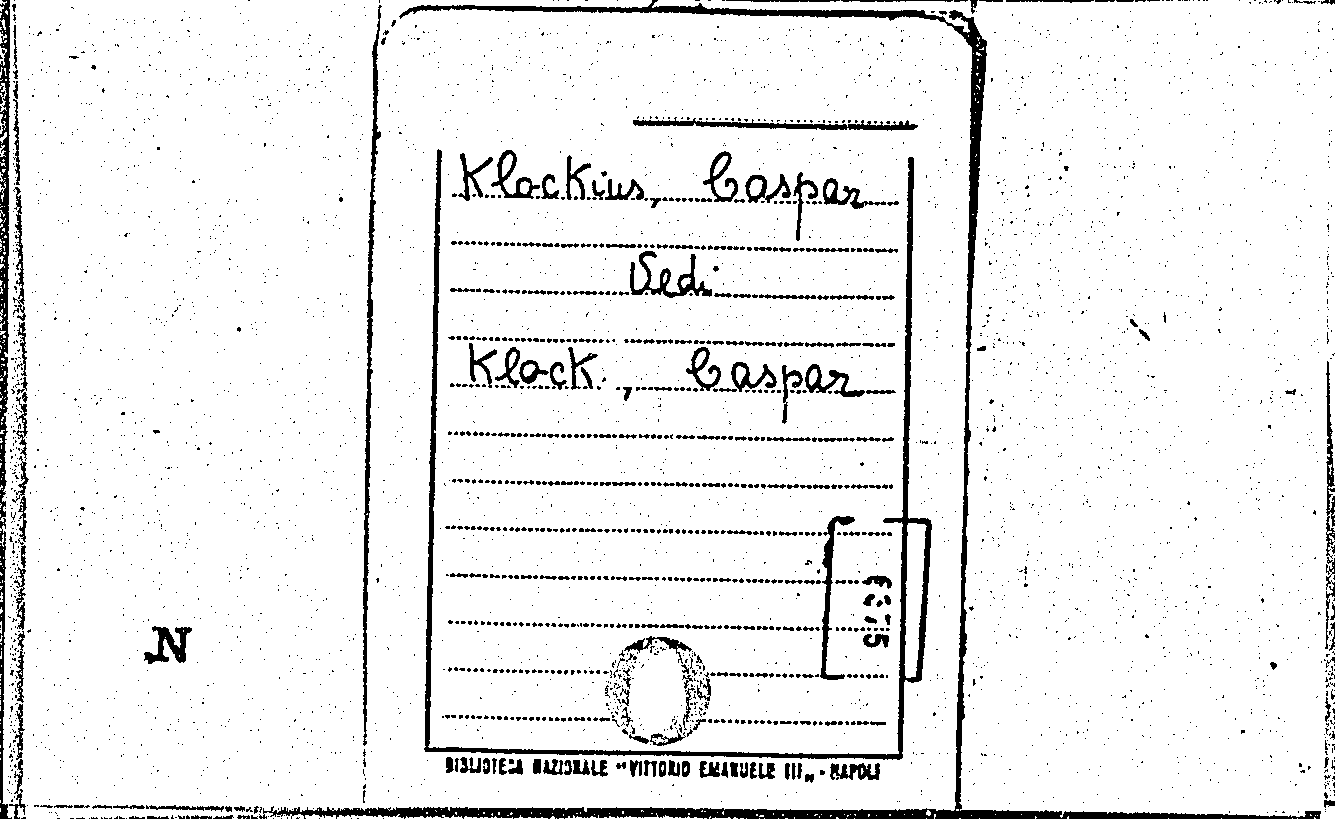 Klockius, Caspar
Vedi
Klock, Caspar
N
BIBLIOTECA NAZIONALE "VITTORIO EMANUELE III" - NAPOLI